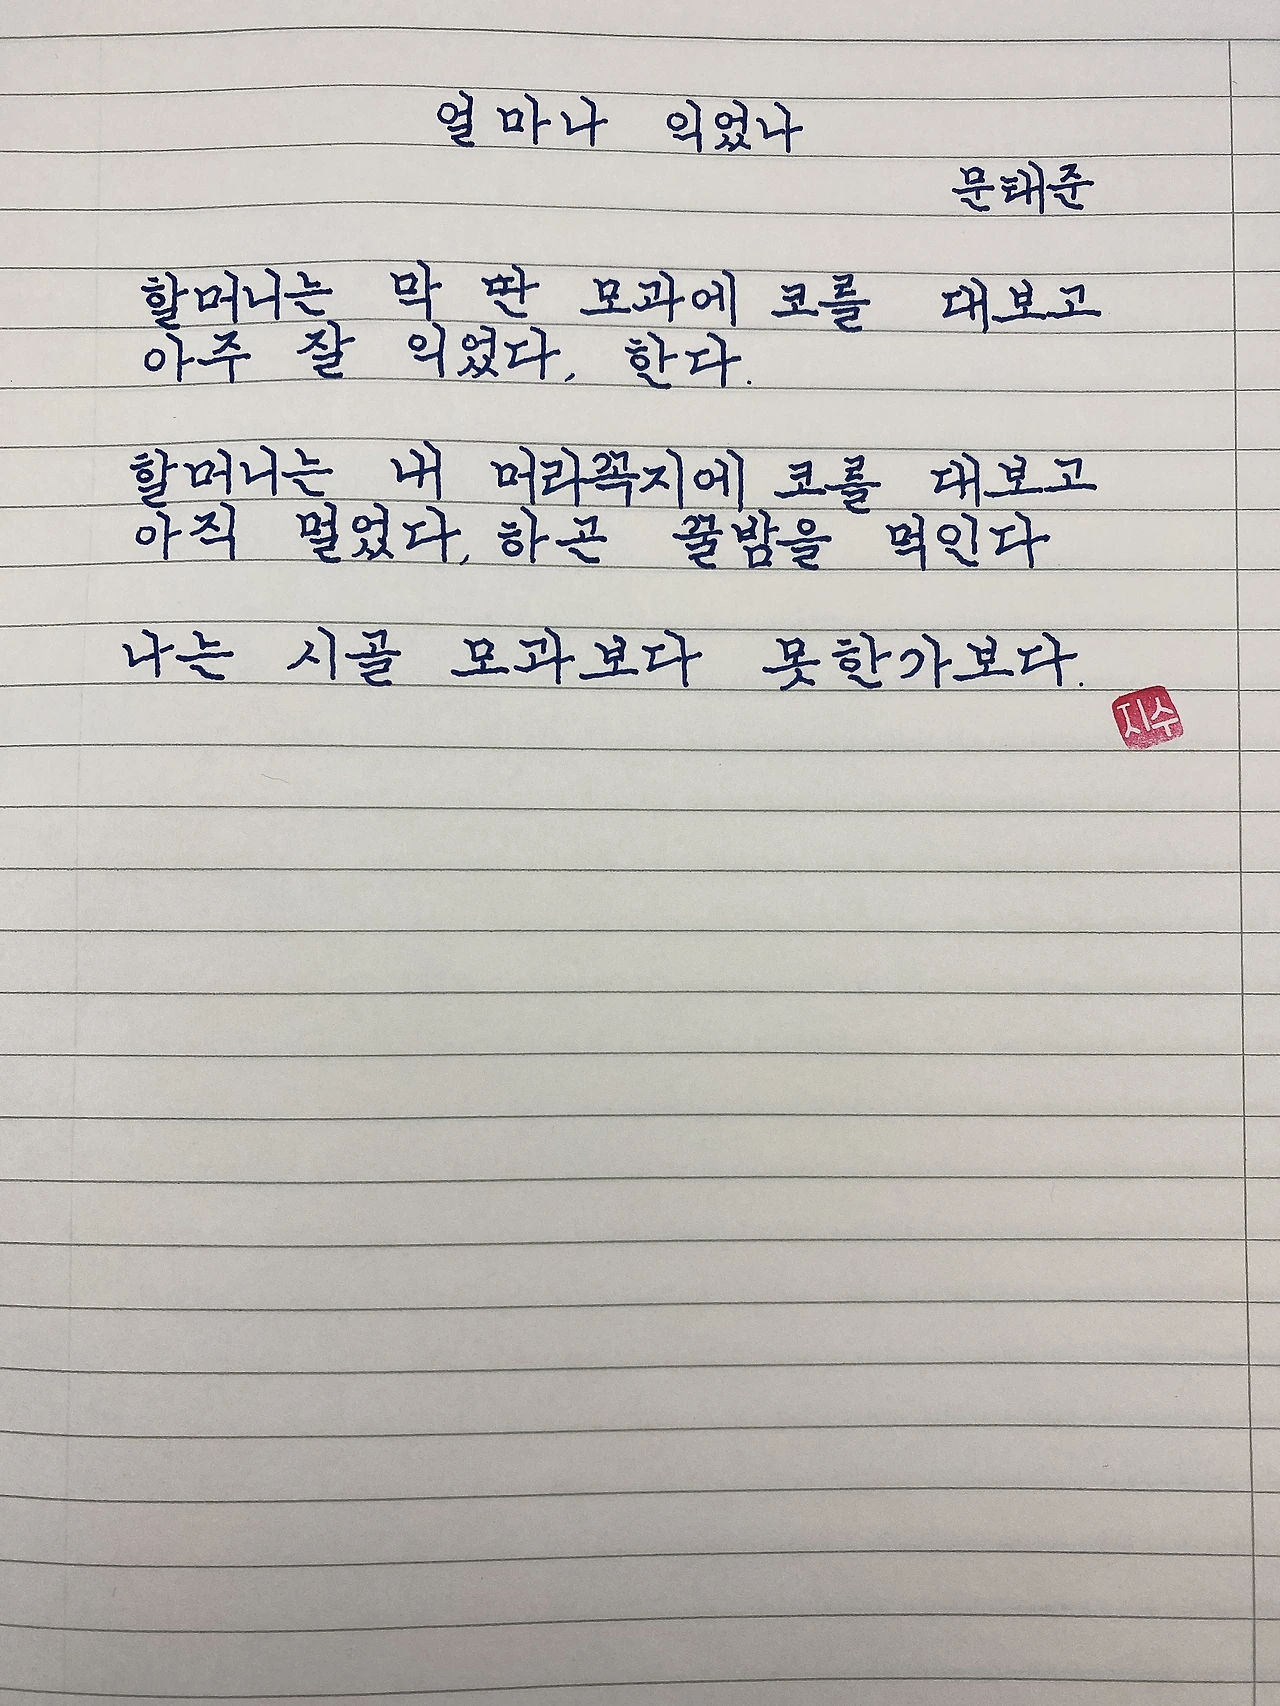 얼마나 익었나
문태준
할머니는 막 딴 모과에 코를 대보고
아주 잘 익었다, 한다.
할머니는 내 머리꼭지에 코를 대보고
아직 멀었다, 하곤 꿀밤을 먹인다
나는 시골 모과보다 못한가보다.
지수